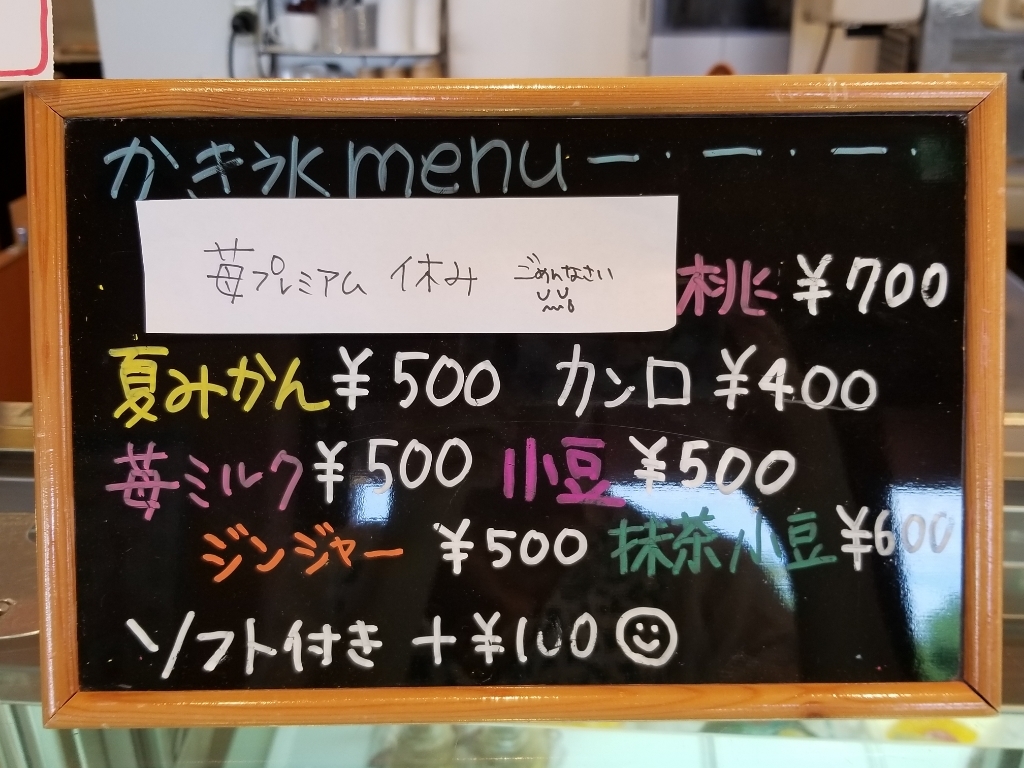 かき氷menu
苺プレミアム 休み ごめんなさい
桃 ¥700
夏みかん ¥500 カンロ ¥400
苺ミルク ¥500 小豆 ¥500
ジンジャー ¥500 抹茶小豆 ¥600
ソフト付き +¥100